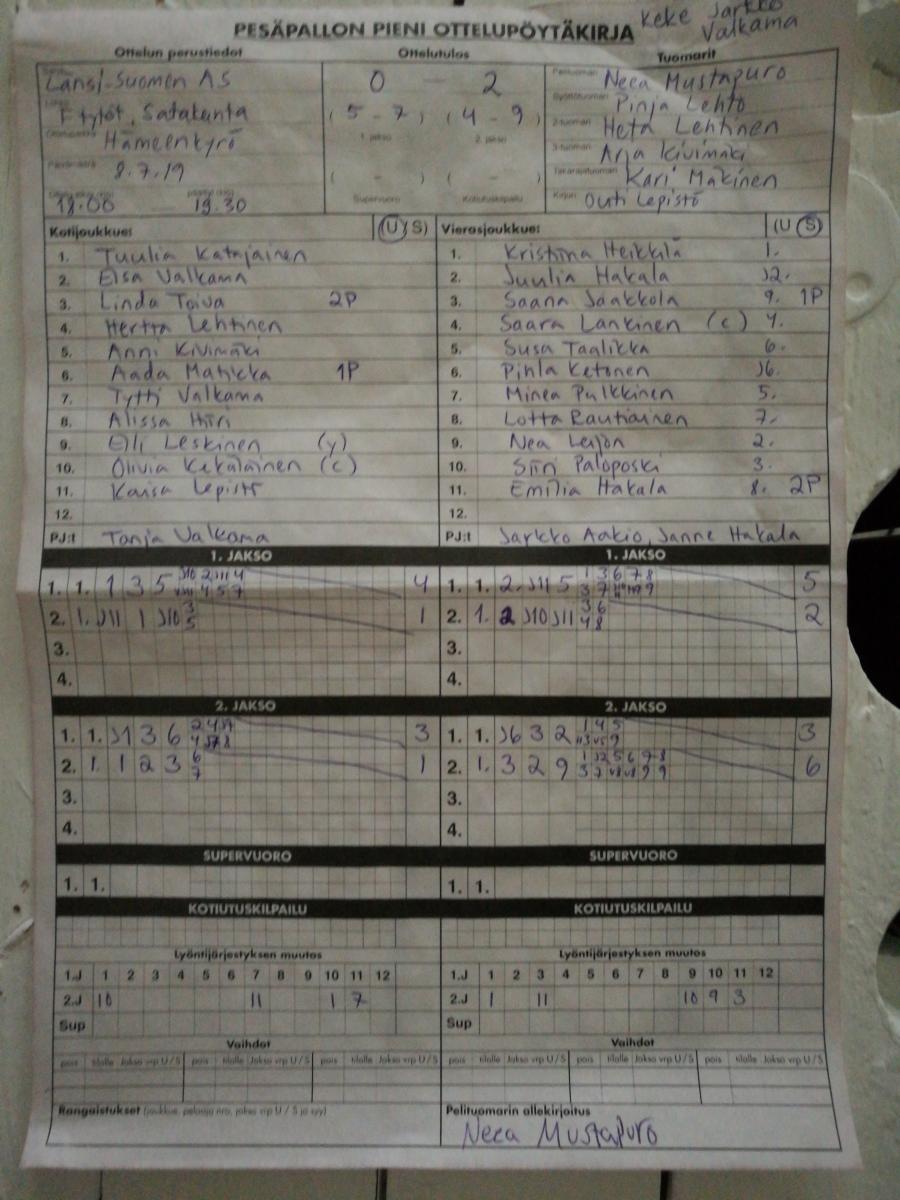 Keke Jarkko
Valkama
PESÄPALLON PIENI OTTELUPÖYTÄKIRJA
Ottelun perustiedot Ottelutulos Tuomarit
Länsi-Suomen AS 0 – 2 Neea Mustapuro
F tytöt, Satakunta (5 - 7) (4 - 9) Pinja Lehto
Hämeenkyrö 1. jakso 2. jakso 2-tuomari Heta Lehtinen
8.7.19 3-tuomari Arja Kivimäki
( - ) ( - ) Takarajatuomari Kari Mäkinen
18.00 19.30 Supervuoro Kotiutuskilpailu Kirjuri Outi Lepistö
Kotijoukkue: (U/S) Vierasjoukkue: (U/S)
1. Tuulia Katajainen 1. Kristiina Heikkilä 1.
2. Elsa Valkama 2. Juulia Hakala J2.
3. Linda Toiva 2P 3. Saana Jaakkola 9. 1P
4. Hertta Lehtinen 4. Saara Lankinen (c) 4.
5. Anni Kivimäki 5. Susa Taalikka 6.
6. Aada Matikka 1P 6. Pihla Ketonen J6.
7. Tytti Valkama 7. Minea Pulkkinen 5.
8. Alissa Hiiri 8. Lotta Rautiainen 7.
9. Elli Leskinen (y) 9. Nea Leijon 2.
10. Olivia Kekäläinen (c) 10. Siiri Paloposki 3.
11. Kaisa Lepistö 11. Emilia Hakala 8. 2P
12. 12.
PJ:t Tanja Valkama PJ:t Jarkko Aakio, Janne Hakala
1. JAKSO 1. JAKSO
1. 1. 1 3 5 4 1. 1. 2. J11 5 5
2. 1. J11 1 J10 1 2. 1. 2 J10 J11 2
3. 3.
4. 4.
2. JAKSO 2. JAKSO
1. 1. J1 3 6 3 1. 1. J6 3 2 3
2. 1. 1 2 3 1 2. 1. 3 2 9 6
3. 3.
4. 4.
SUPERVUORO SUPERVUORO
1. 1. 1. 1.
KOTIUTUSKILPAILU KOTIUTUSKILPAILU
Lyöntijärjestyksen muutos Lyöntijärjestyksen muutos
1.J 1 2 3 4 5 6 7 8 9 10 11 12 1.J 1 2 3 4 5 6 7 8 9 10 11 12
2.J 10 11 1 7 2.J 1 11 10 9 3
Sup Sup
Vaihdot Vaihdot
pois tilalle Jakso vrp U/S pois tilalle Jakso vrp U/S pois tilalle Jakso vrp U/S pois tilalle Jakso vrp U/S pois tilalle Jakso vrp U/S pois tilalle Jakso vrp U/S
Rangaistukset (joukkue, pelaaja nro, jakso vrp U / S ja syy) Pelituomarin allekirjoitus
Neea Mustapuro